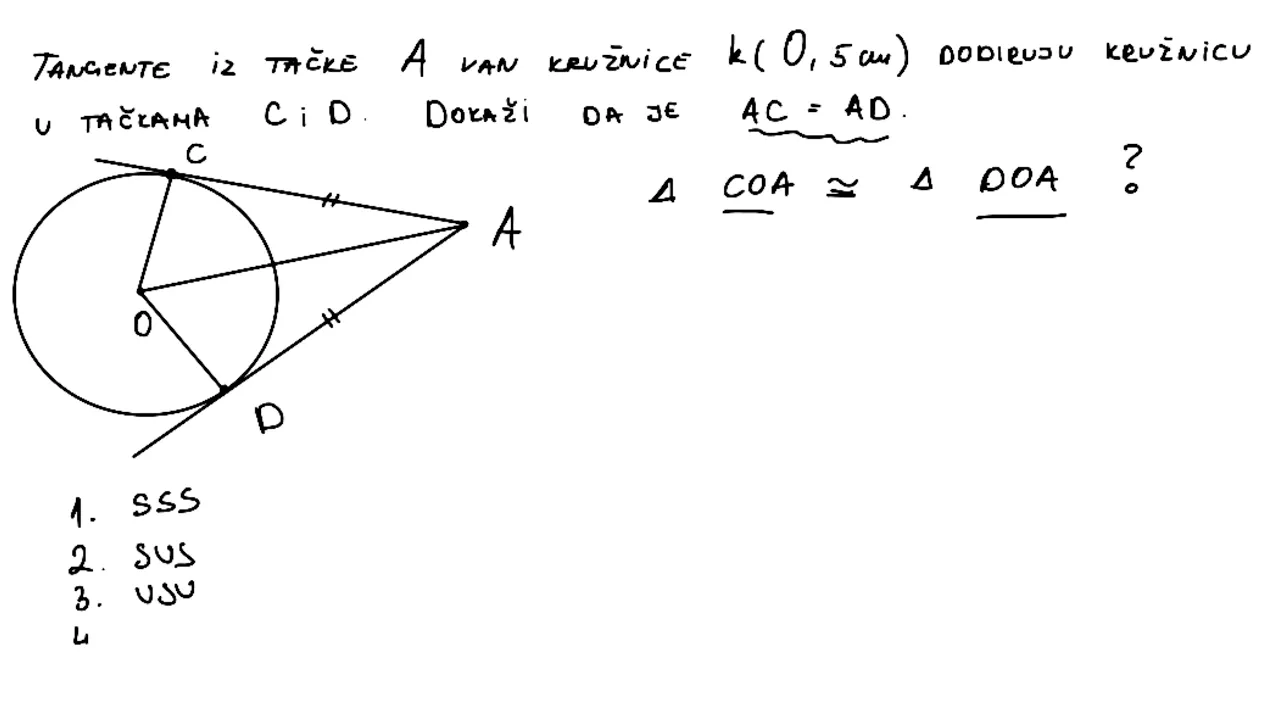 TANGENTE iZ TAČKE A VAN KRUŽNiCE k(O, 5cm) DODIRUJU KRUŽNiCU
U TAČKAMA C i D. DOKAŽi DA JE AC = AD.
C
Δ COA ≅ Δ DOA ?
A
O
D
1. SSS
2. SUS
3. USU
4